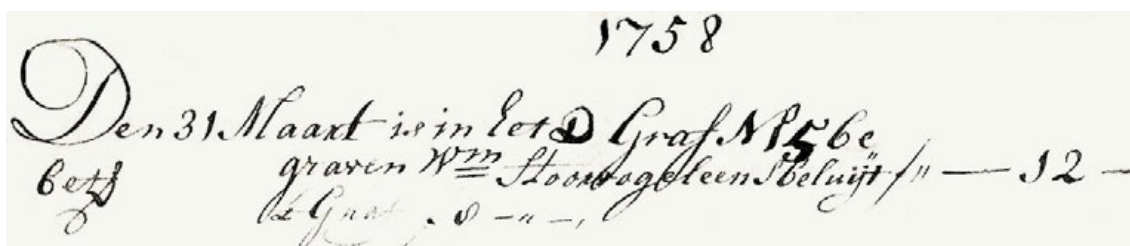 1758
Den 31 Maart is in het D Graf No 5 be
graven Wm Stoorvogel een S beluijt f " — 12 —
bet
't Graf . 8 — " — ,